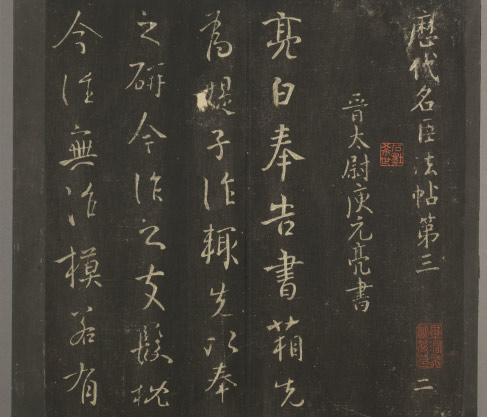 歷代名臣法帖第三
二
晉太尉庾元亮書
亮白奉告書箱先
為媞子作輙先以奉
之研今作之支髮枕
今往無作模若有